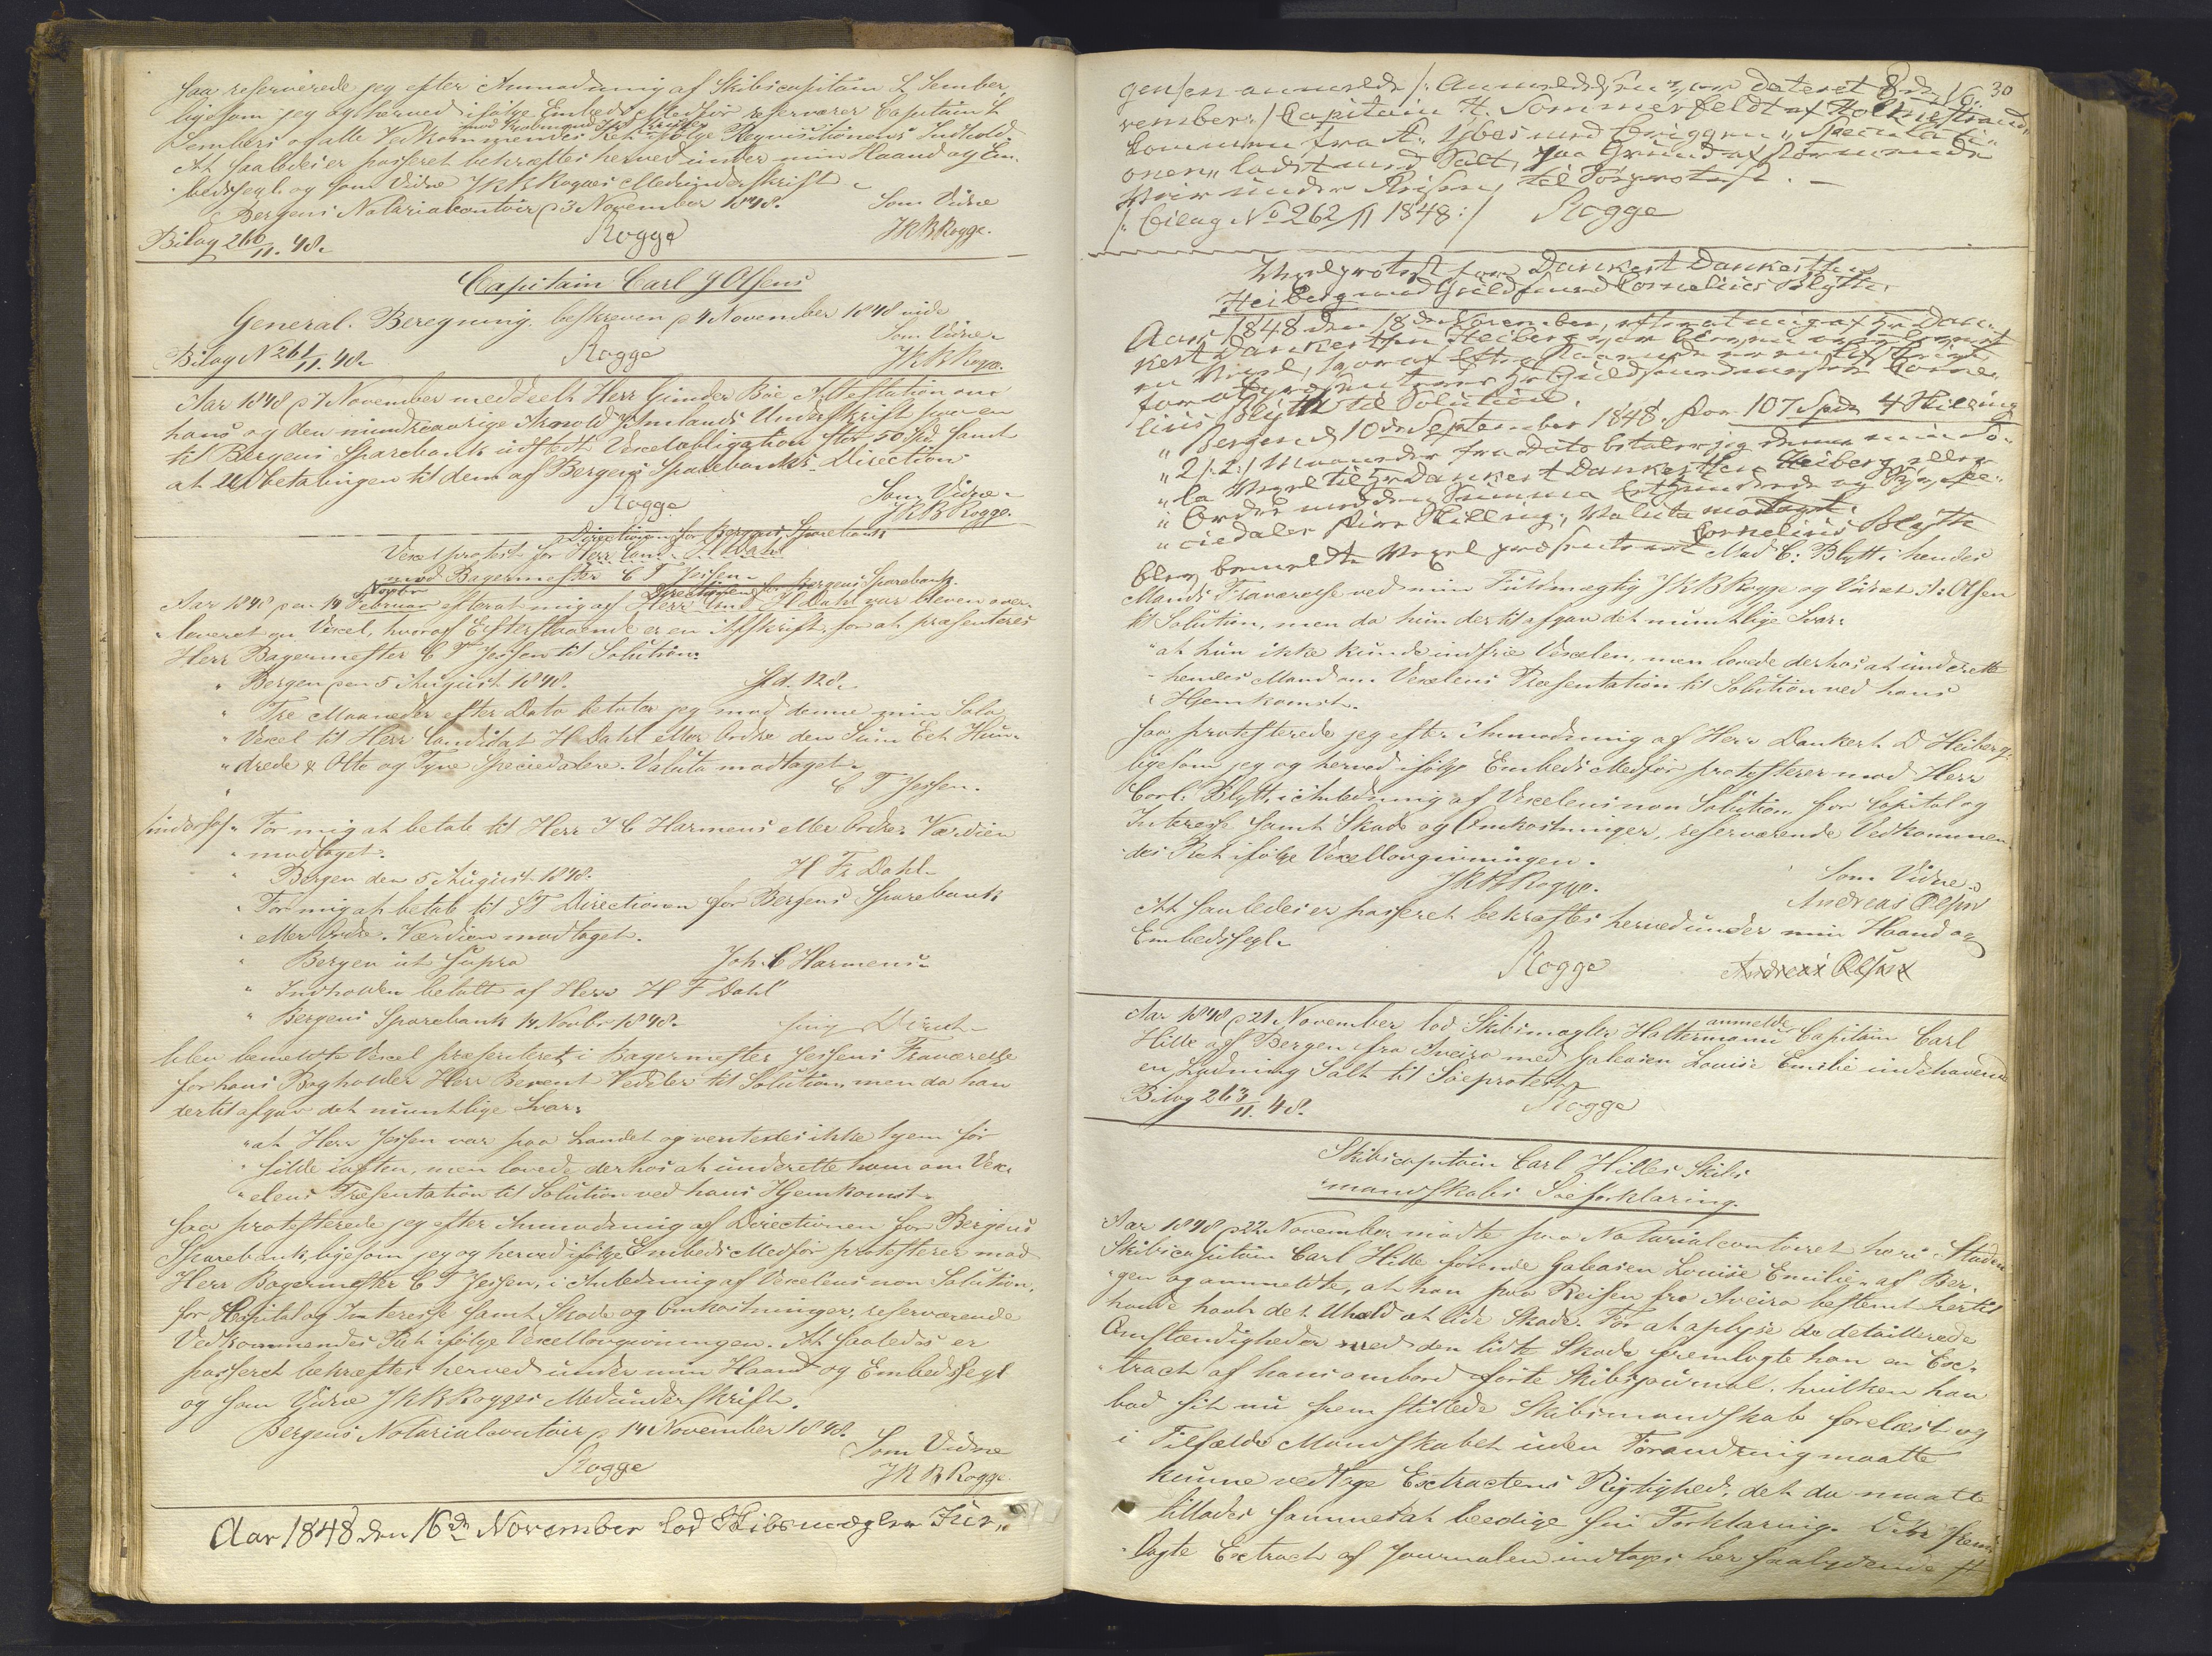 saa reserverede jeg efter Anmodning af Skibscapitain L Sember,
ligesom jeg og herved ifølge Embeds Medfør reserverer Capitain L
mod
Sembers og alle Vedkommendes Ret ifølge Reqvisitionens Indhold.
At saaledes er passeret bekræftes herved under min Haand og Em-
bedssegl og som Vidne J K B Rogges Medunderskrift.
Bergens Notarialcontoir d 3 November 1848. Som Vidne
Bilag 260/11. 48. Rogge J K B Rogge.
Capitain Carl J Olsens
General-Beregning beskreven d 4 November 1848 vide
Som Vidne
Bilag No 261/11. 48. Rogge J K B Rogge.
Aar 1848 d 7 November meddeelt Herr Gunder Bøe Attestation om
hans og den mindreaarige Arnold Amlands Underskrift paa en
til Bergens Sparebank udstedt Vexelobligation stor 50 Spd. samt
at Udbetalingen til dem af Bergens Sparebanks Direction
Rogge Som Vidne
J K B Rogge.
Directionen for Bergens Sparebank
Vexelprotest for Herr Cand. H Dahl
mod Bagermester C T Jessen
Novbr Directionen for Bergens Sparebank.
Aar 1848 den 14 Februar efterat mig af Herr Cand H Dahl var bleven over-
leveret en Vexel, hvoraf Efterstaaende er en Afskrift, for at præsenteres
Herr Bagermester C T Jessen til Solution:
" Bergen den 5 August 1848. Spd. 128.
" Tre Maaneder efter Dato betaler jeg mod denne min Sola
" Vexel til Herr Candidat H Dahl eller Ordre den Sum Eet Hun-
" drede & Otte og Tyve Speciedalere. Valuta modtaget.
" C T Jessen.
" For mig at betale til Herr J C Harmens eller Ordre. Værdien
" modtaget.
" Bergen den 5 August 1848. H Fr Dahl
" For mig at betale til ST Directionen for Bergens Sparebank
" eller Ordre. Værdien modtaget.
" Bergen ut supra Joh. C Harmens
" Indholden betalt af Herr H F Dahl
" Bergens Sparebank 14 Novbr 1848.
blev bemeldte Vexel præsenteret i Bagermester Jessens Fraværelse
for hans Bogholder Herr Berent Vedeler til Solution, men da han
dertil afgav det mundtlige Svar:
" at Herr Jessen var paa Landet og ventedes ikke hjem før
" silde iaften, men lovede derhos at underrette ham om Vex-
" elens Præsentation til Solution ved hans Hjemkomst.
saa protesterede jeg efter Anmodning af Directionen for Bergens
Sparebank, ligesom jeg og herved ifølge Embeds Medfør protesterer mod
Herr Bagermester C T Jessen, i Anledning af Vexelens non Solution,
for Capital og Interesse samt Skade og Omkostninger, reserverende
Vedkommendes Ret ifølge Vexellovgivningen. At saaledes er
passeret bekræftes herved under min Haand og Embedssegl
og som Vidne J K B Rogges Medunderskrift.
Bergens Notarialcontoir d 14 November 1848. Som Vidne
Rogge J K B Rogge.
Aar 1848 den 16de November lod Skibsmægler Jür-
30
gensen anmelde /: Anmeldelsen dateret 8de No-
vember :/ Capitain H. Sommerfeldt af Holmestrand
kommen fra St. Ybes med Briggen "Speculati-
onen" ladet med Salt, paa Grund af
under Reisen, til Søeprotest.
/: Bilag No 262/11 1848 :/ Rogge
Vexelprotest for Dankert Dankertsen
Heiberg mod Guldsmed Cornelius Blytt.
Aar 1848 den 18de November, efterat mig af Hr. Dan-
kert Dankertsen Heiberg var bleven
en Vexel, hvoraf Efterstaaende er en Afskrift
for at præsenteres Hr Guldsmedmester Corne-
lius Blytt til Solution.
" Bergen d 10de September 1848. for 107 Spd 4 Skilling
" 2/:2:/ Maaneder fra dato betaler jeg denne min So-
" la Vexel til Hr Dankert Dankertsen Heiberg eller
" Ordre med den Summa Eethundrede og Syv Spe-
" ciedaler fire Skilling, Valuta modtaget.
Cornelius Blytt
blev bemeldte Vexel præsenteret Mad C. Blytt i hendes
Mands Fraværelse ved min Fuldmægtig J K B Rogge og Vidnet A: Olsen
til Solution, men da hun dertil afgav det mundtlige Svar:
" at hun ikke kunde indfrie Vexelen, men lovede derhos at underrette
" hendes Mand om Vexelens Præsentation til Solution ved hans
" Hjemkomst.
saa protesterede jeg efter Anmodning af Herr Dankert D Heiberg,
ligesom jeg og herved ifølge Embeds Medfør protesterer mod Herr
Corl. Blytt, i Anledning af Vexelens non Solution for Capital og
Interesse samt Skade og Omkostninger, reserverende Vedkommen-
des Ret ifølge Vexellovgivningen.
Som Vidne
J K B Rogge. Andreas Olsen
At saaledes er passeret bekræftes herved under min Haand og
Embedssegl.
Rogge Andreas Olsen
Aar 1848 d 21 November lod Skibsmægler Haltermann anmelde Capitain Carl
Hille af Bergen fra Aveiro med Galeasen Louise Emilie indehavende
en Ladning Salt til Søeprotest
Bilag 263/11. 48. Rogge
Skibscapitain Carl Hilles Skibs
mandskabs Søeforklaring.
Aar 1848 d 22 November mødte paa Notarialcontoiret her i Staden
Skibscapitain Carl Hille førende Galeasen Louise Emilie af Ber-
gen og anmeldte, at han paa Reisen fra Aveiro bestemt hertil
havde havt det Uheld at lide Skade. For at oplyse de detaillerede
Omstændigheder ved den lidte Skade fremlagte han en Ex-
tract af hans ombord førte Skibsjournal, hvilken han
bad sit nu fremstillede Skibsmandskab forelæst og
i Tilfælde Mandskabet uden Forandring maatte
kunne vedtage Extractens Rigtighed, det da maatte
tillades samme at beedige sin Forklaring. Den frem-
lagte Extract af Journalen indtages her saalydende #